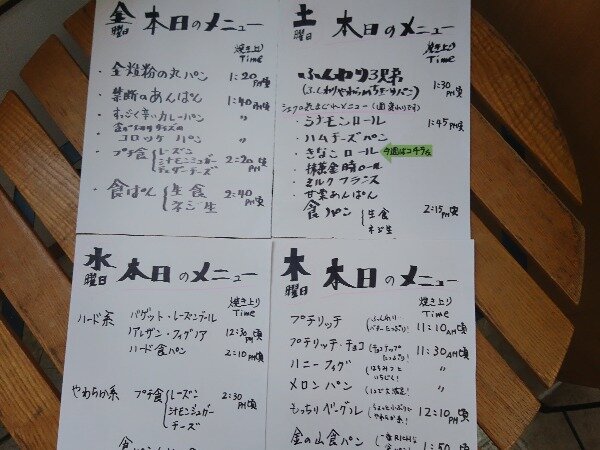 金曜日 本日のメニュー
焼き上り Time
・全粒粉の丸パン 1:20PM頃
・禁断のあんぱん 1:40PM頃
・すっごく辛いカレーパン 〃
コロッケパン 〃
・プチ食 レーズン
シナモンシュガー 2:20PM頃
チェダーチーズ
・食ぱん 生食 2:40PM頃
ネジ生
土曜日 本日のメニュー
焼き上り Time
ふんわり3兄弟 1:30PM頃
・シナモンロール 1:45PM頃
・ハムチーズパン
・きなこロール 今週はコチラ
・抹茶金時ロール
・ミルクフランス
・甘栗あんぱん
・食パン 生食 2:15PM頃
ネジ生
水曜日 本日のメニュー
焼き上り Time
ハード系 バゲット・レーズンノール
ノアレザン・フィグノア 12:30PM頃
ハード食パン 2:10PM頃
やわらか系 プチ食 レーズン 2:30PM頃
シナモンシュガー
チーズ
木曜日 本日のメニュー
焼き上り Time
プチリッチ (ふんわり・バターたっぷり!) 11:10AM頃
プチリッチ・チョコ (チョコチップたっぷり!) 11:30AM頃
ハニーフィグ (はちみつといちじく!) 〃
メロンパン 〃
もっちりベーグル 12:10PM頃
金の山食パン 1:50PM頃